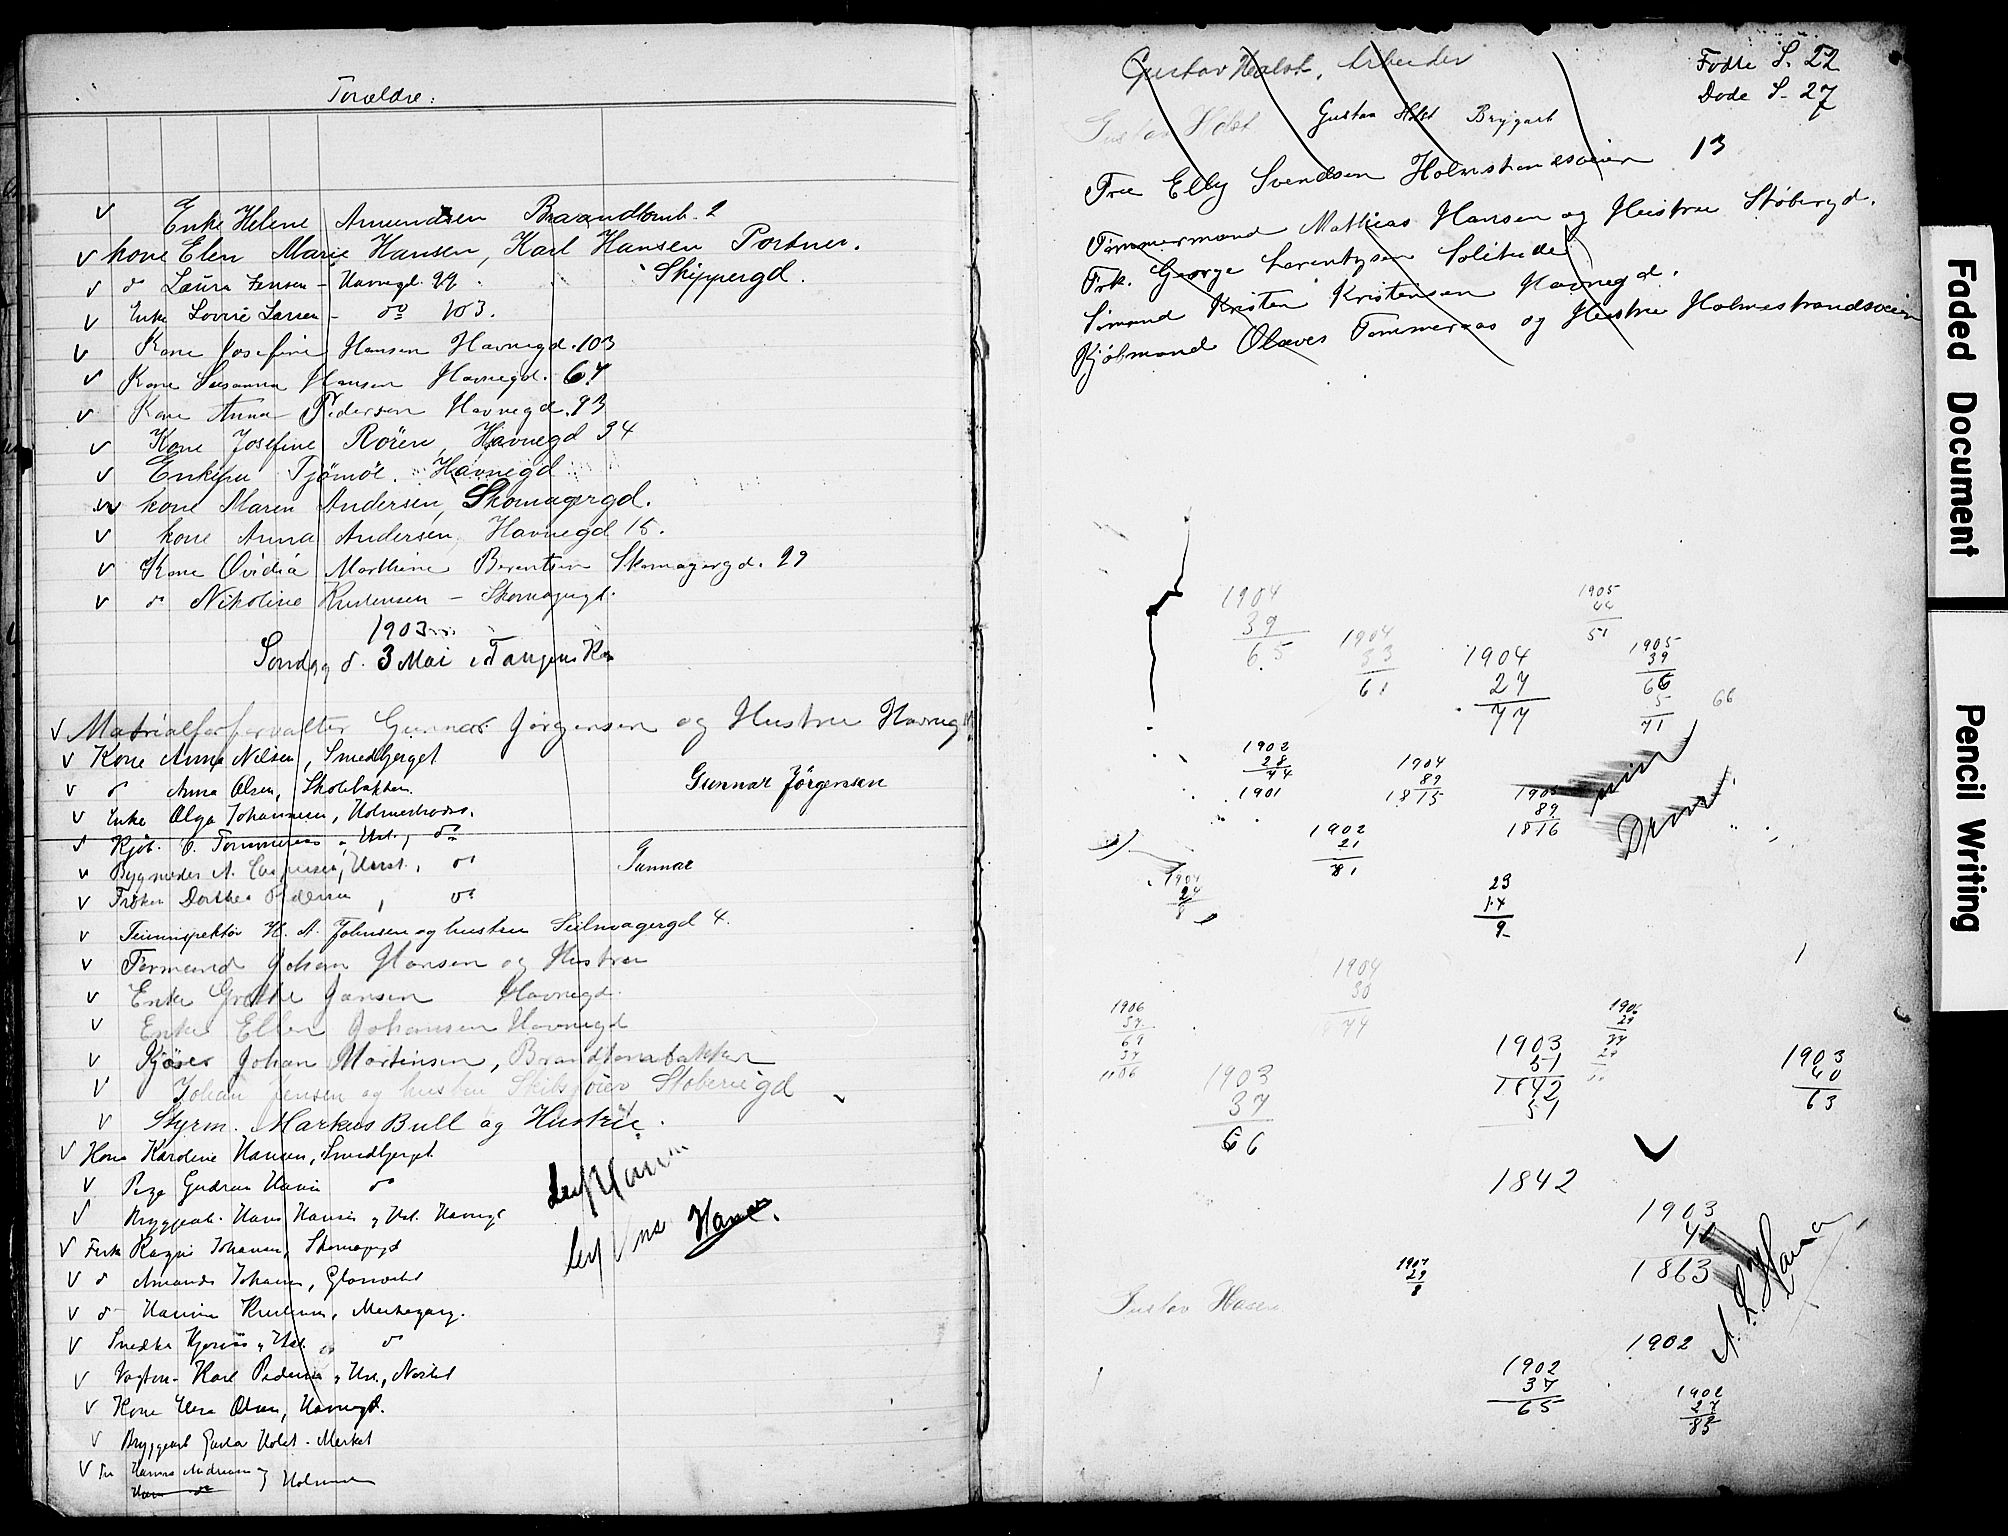 Forældre:
Enke Helene Amundsen Brandtomb. 2
kone Elen Marie Hansen, Karl Hansen Portner.
do Laura Jensen - Havnegd. 99 Skippergd.
Enke Lovise Larsen - do 103.
Kone Josefine Hansen Havnegd. 103
Kone Susanna Hansen Havnegd. 67
Kone Anna Pedersen Havnegd. 93
Kone Josefine Rören, Havnegd 34
Enkefru Tjömöe. Havnegd
kone Maren Andersen, Skomagergd.
kone Anna Andersen, Havnegd 15.
Kone Ovidia Marthine Berentsen Skomagergd. 29
do Nikoline Kristensen - Skomagergd.
1903
Söndag d. 3 Mai i Tangens K
Matrialforforvalter Gunnar Jörgensen og Hustru Havneg
Kone Anna Nilsen, Smedbjerget
do Anna Olsen, Skolebakken
Gunnar Jörgensen
Enke Olga Johannesen, Holmestrandsv.
Kjöb. O. Tommeraas, Hst., do
Bygmester A. Hust., do
Gunnar
Fröken Dorthea Pedersen, do
H. A. Johnsen og hustru Seilmagergd 4.
Formand Johan Hansen og Hustru
Enke Grethe Jansen Havnegd.
Enke Ellen Johansen Havnegd
Kjöser Johan Martinsen, Brandtomtbakken
Johan Jensen og hustru Skibsfører Støberigd
Styrm. Markus Bull og Hustru.
Kone Karoline Hansen, Smedbjerget
Pige Gudrun Hansen do
Leif Hansen
Bryggearb. Hans Hansen og Hst. Havnegd
Leif Hansen
Frk Ragni Johansen, Skomagergd
do Amanda Johansen, Glassverket
do Hanna Kristensen, Merkegang.
Snedker og Hst. do
Karl Pedersen, Hst., Nøsted
Kone Olsen, Havnegd.
Bryggearb Gustav Holst. Merket
Fru Hanna Andersen Holmen
Gustav Holst, Arbeider
Födte S. 22
Döde S. 27
Gustav Holst Gustav Holst Bryggarb
Fru Elly Svendsen Holmstrandsveien 13
Tømmermand Mathias Hansen og Hustru Støberigd.
Frk. George Lorentzen Solitude
Sömand Kristen Kristensen Havnegd.
Kjöbmand Olaves Tommeraas og Hustru Holmestrandsveien
1904
39
65
1904
33
61
1904
27
77
1905
44
51
1905
39
66
5
71
66
1902
28
74
1901
1904
89
1815
1905
89
1816
Dram
1902
21
81
1904
24
8
23
14
9
1904
30
1874
1906
37
69
37
1106
1903
37
66
1903
51
1642
51
1906
29
77
29
1903
40
63
1842
1903
40
1863
A. L. Hansen
1907
29
8
Gustav Hasen
1902
1902
37
65
1902
27
85
Faded Document
Pencil Writing